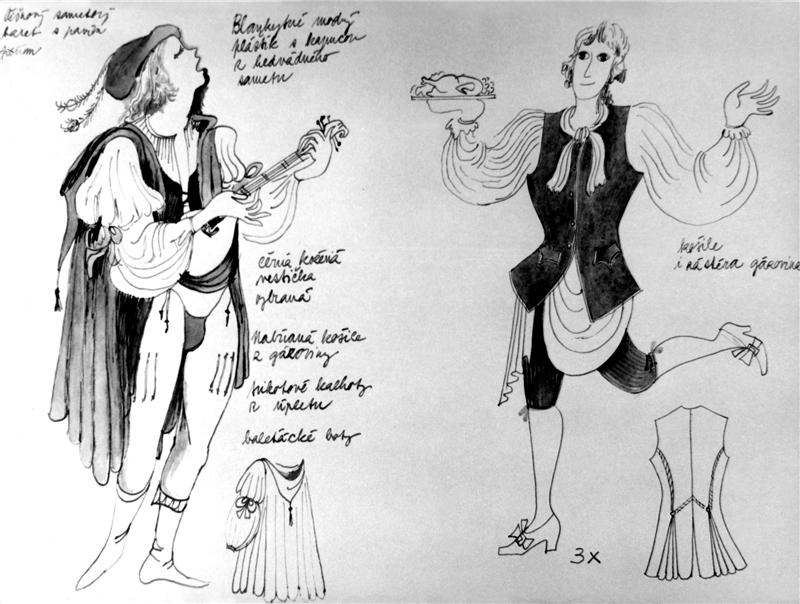 Višňový sametový
baret s pavím
peřím
Blankytně modrý
pláštík s kapucou
z hedvábného
sametu
černá kožená
vestička
vybraná
Nabíraná košile
z gázoviny
trikotové kalhoty
z úpletu
baletácké boty
košile
i zástěra gázovina
3x